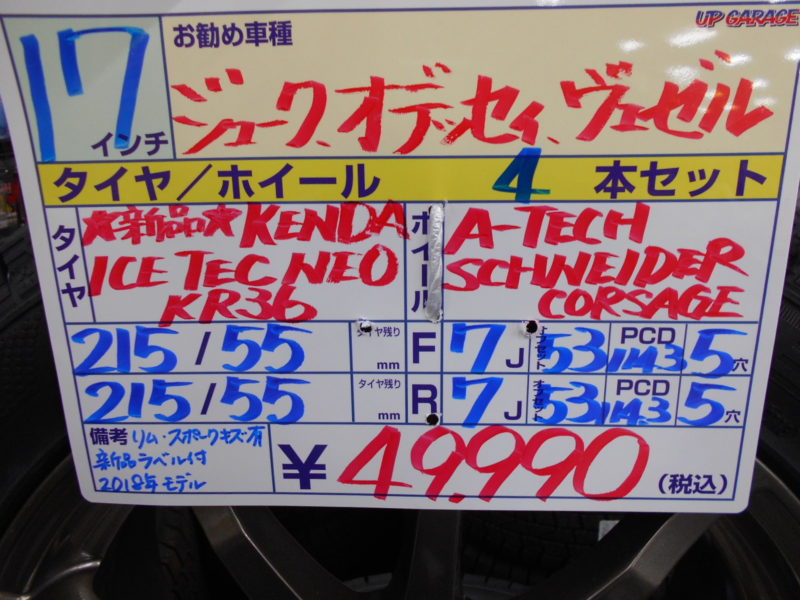 UP GARAGE
17インチ
お勧め車種
ジューク、オデッセイ、ヴェゼル
タイヤ/ホイール 4 本セット
タイヤ
★新品★ KENDA
ICE TEC NEO
KR36
ホイール
A-TECH
SCHNEIDER
CORSAGE
215/55 タイヤ残り mm F 7J オフセット 53 PCD 114.3 5穴
215/55 タイヤ残り mm R 7J オフセット 53 PCD 114.3 5穴
備考 リム・スポークキズ有
新品ラベル付
2018年モデル
¥49,990 (税込)